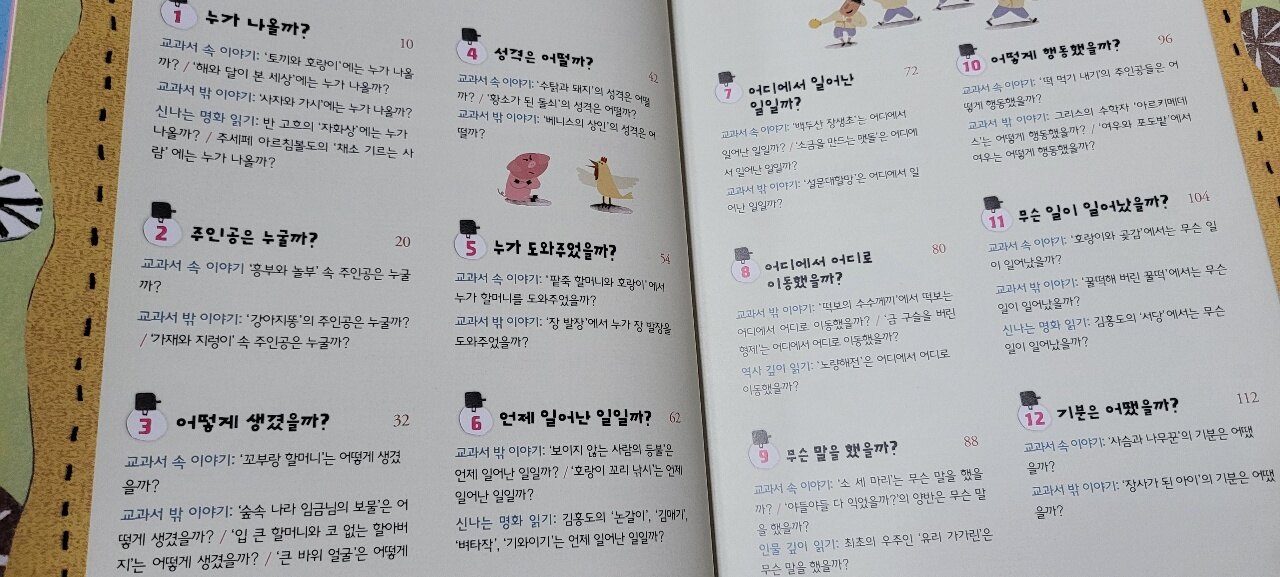 1 누가 나올까? 10
교과서 속 이야기: '토끼와 호랑이'에는 누가 나올
까? / '해와 달이 본 세상'에는 누가 나올까?
교과서 밖 이야기: '사자와 가시'에는 누가 나올까?
신나는 명화 읽기: 반 고흐의 '자화상'에는 누가
나올까? / 주세페 아르침볼도의 '채소 기르는 사
람'에는 누가 나올까?
2 주인공은 누굴까? 20
교과서 속 이야기 '흥부와 놀부' 속 주인공은 누굴
까?
교과서 밖 이야기: '강아지똥'의 주인공은 누굴까?
/ '가재와 지렁이' 속 주인공은 누굴까?
3 어떻게 생겼을까? 32
교과서 속 이야기: '꼬부랑 할머니'는 어떻게 생겼
을까?
교과서 밖 이야기: '숲속 나라 임금님의 보물'은 어
떻게 생겼을까? / '입 큰 할머니와 코 없는 할아버
지'는 어떻게 생겼을까? / '큰 바위 얼굴'은 어떻게
4 성격은 어떨까? 42
교과서 속 이야기: '수탉과 돼지'의 성격은 어떨
까? / '황소가 된 돌쇠'의 성격은 어떨까?
교과서 밖 이야기: '베니스의 상인'의 성격은 어
떨까?
5 누가 도와주었을까? 54
교과서 속 이야기: '팥죽 할머니와 호랑이'에서
누가 할머니를 도와주었을까?
교과서 밖 이야기: '장 발장'에서 누가 장 발장을
도와주었을까?
6 언제 일어난 일일까? 62
교과서 밖 이야기: '보이지 않는 사람의 등불'은
언제 일어난 일일까? / '호랑이 꼬리 낚시'는 언제
일어난 일일까?
신나는 명화 읽기: 김홍도의 '논갈이', '김매기',
'벼타작', '기와이기'는 언제 일어난 일일까?
7 어디에서 일어난 72
일일까?
교과서 속 이야기: '백두산 장생초'는 어디에서
일어난 일일까? / '소금을 만드는 맷돌'은 어디에
서 일어난 일일까?
교과서 밖 이야기: '설문대할망'은 어디에서 일
어난 일일까?
8 어디에서 어디로 80
이동했을까?
교과서 밖 이야기: '떡보의 수수께끼'에서 떡보는
어디에서 어디로 이동했을까? / '금 구슬을 버린
형제'는 어디에서 어디로 이동했을까?
역사 깊이 읽기: '노량해전'은 어디에서 어디로
이동했을까?
9 무슨 말을 했을까? 88
교과서 속 이야기: '소 세 마리'는 무슨 말을 했을
까? / '야들야들 다 익었을까?'의 양반은 무슨 말
을 했을까?
인물 깊이 읽기: 최초의 우주인 '유리 가가린'은
무슨 말을 했을까?
10 어떻게 행동했을까? 96
교과서 속 이야기: '떡 먹기 내기'의 주인공들은 어
떻게 행동했을까?
교과서 밖 이야기: 그리스의 수학자 '아르키메데
스'는 어떻게 행동했을까? / '여우와 포도밭'에서
여우는 어떻게 행동했을까?
11 무슨 일이 일어났을까? 104
교과서 속 이야기: '호랑이와 곶감'에서는 무슨 일
이 일어났을까?
교과서 밖 이야기: '꿀떡해 버린 꿀떡'에서는 무슨
일이 일어났을까?
신나는 명화 읽기: 김홍도의 '서당'에서는 무슨
일이 일어났을까?
12 기분은 어땠을까? 112
교과서 속 이야기: '사슴과 나무꾼'의 기분은 어땠
을까?
교과서 밖 이야기: '장사가 된 아이'의 기분은 어땠
을까?